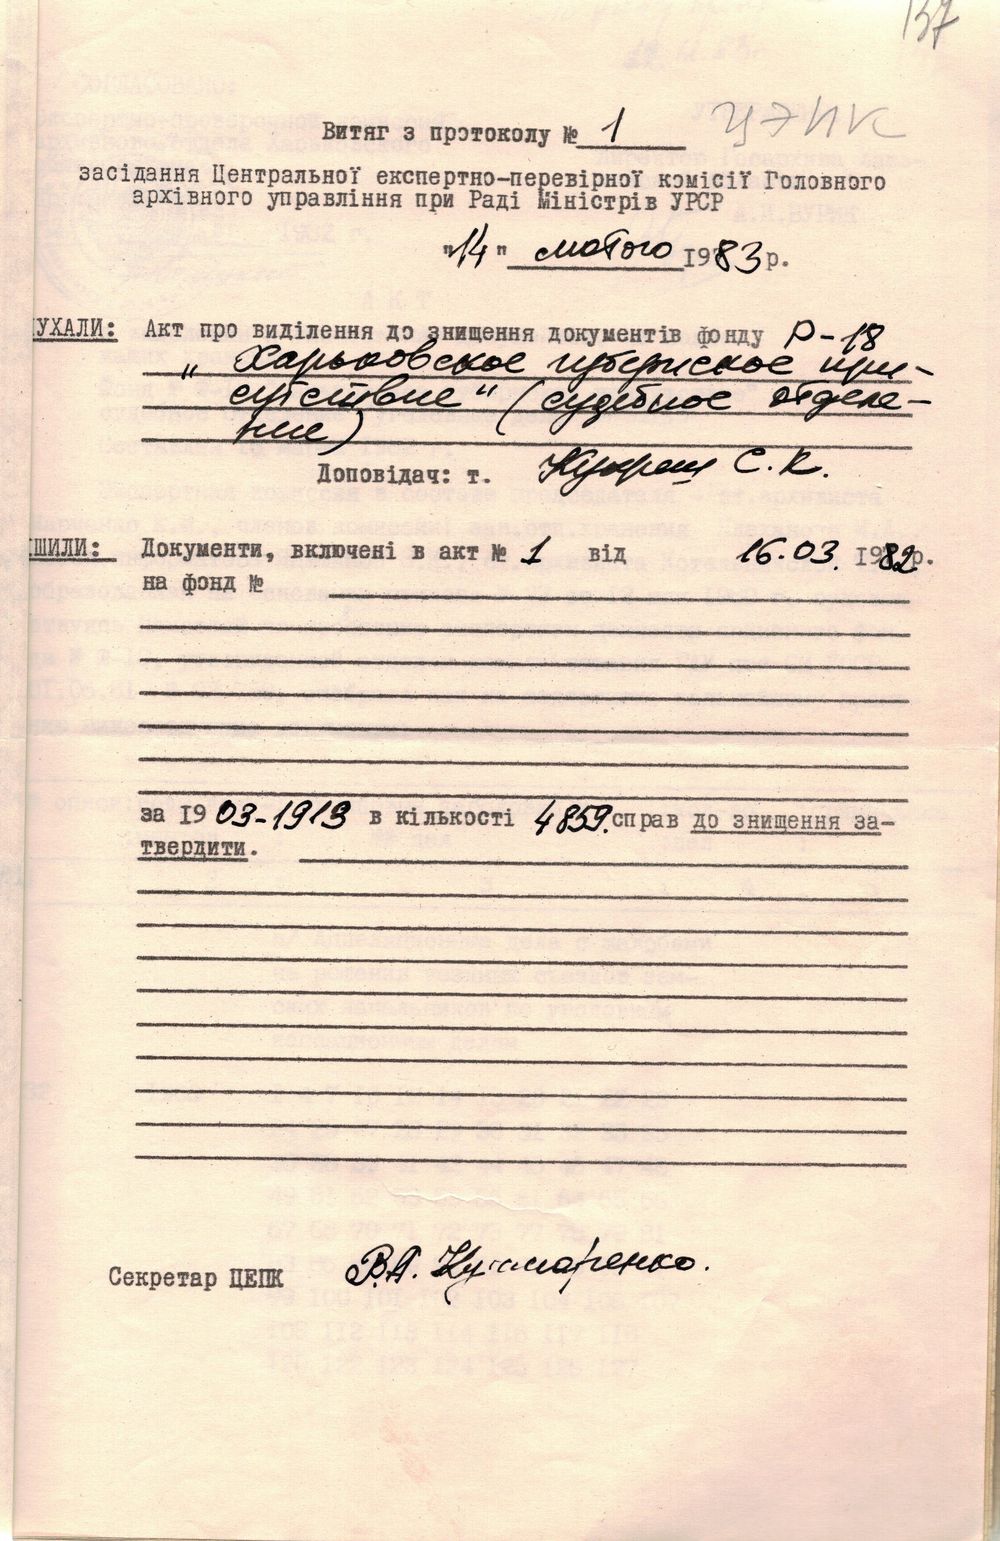 137
Витяг з протоколу № 1 ЦЭПК
засідання Центральної експертно-перевірної комісії Головного
архівного управління при Раді Міністрів УРСР
"14" лютого 1983 р.
УХАЛИ: Акт про виділення до знищення документів фонду Р-18
„Харьковское губернское при-
сутствие" (судебное отделе-
ние)
Доповідач: т. С.К.
ШИЛИ: Документи, включені в акт № 1 від 16.03. 1982р.
на фонд №
за 1903-1919 в кількості 4859 справ до знищення за-
твердити.
Секретар ЦЕПК В.А.